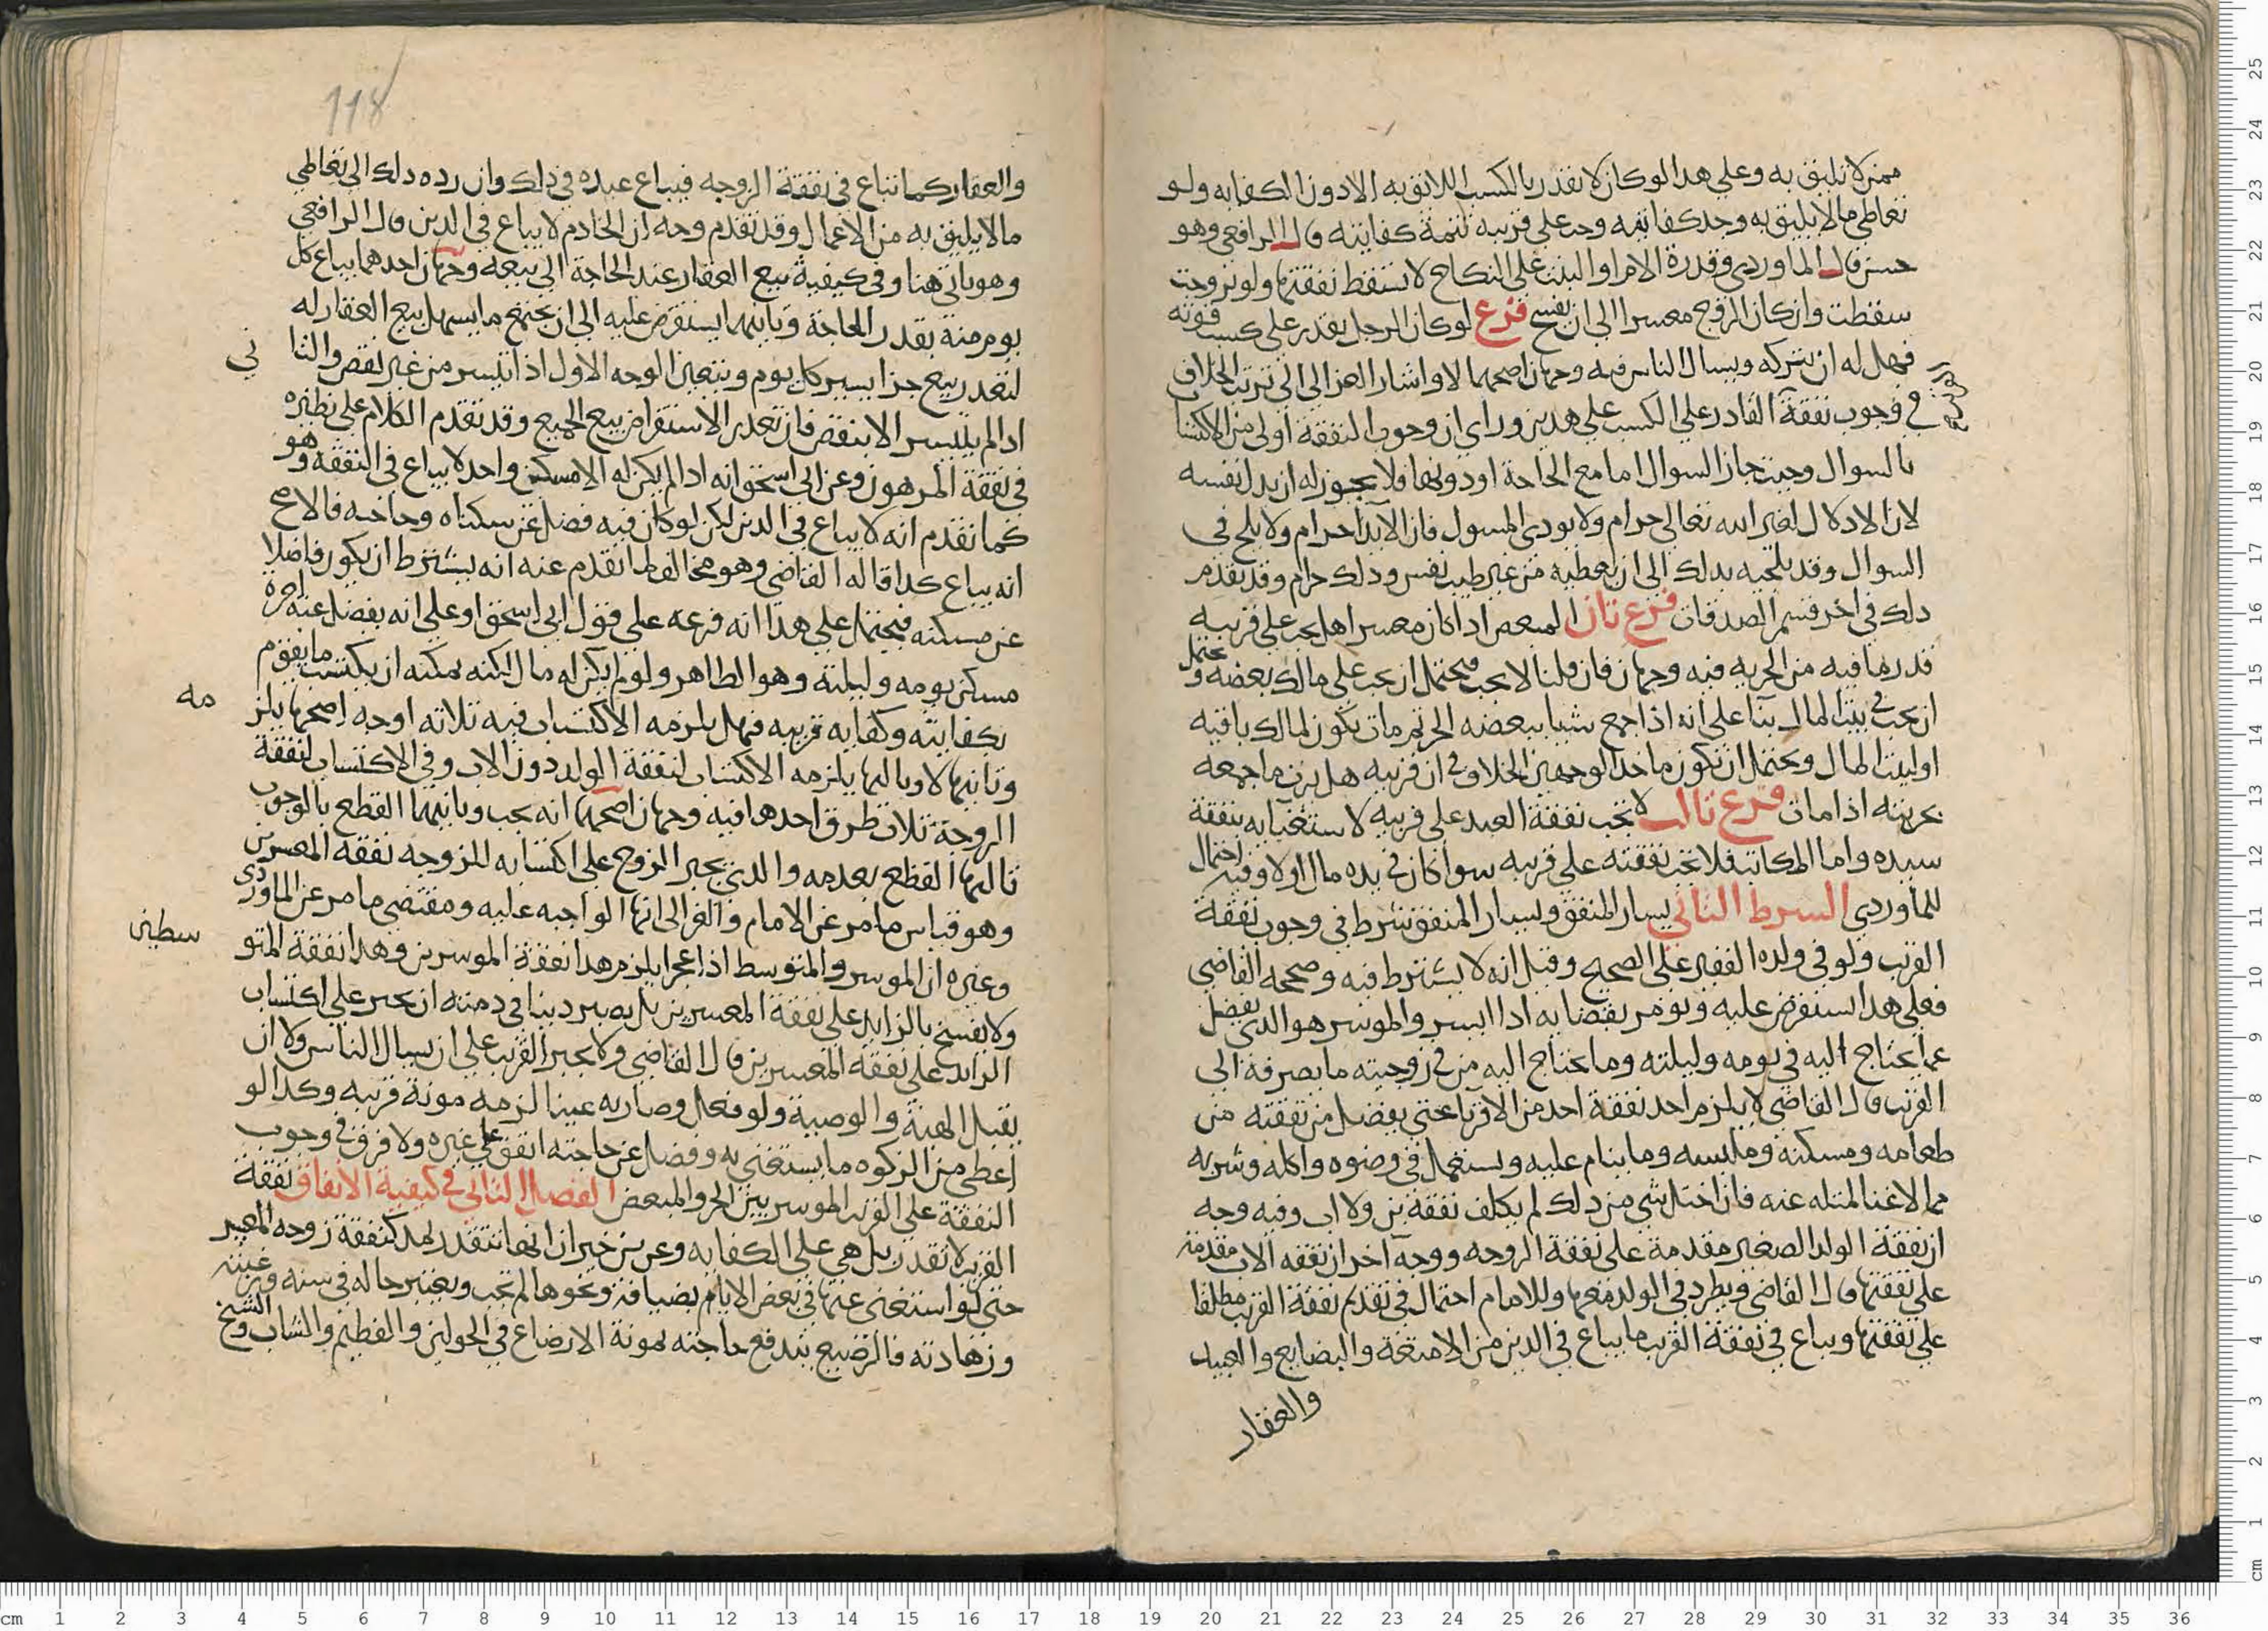 ممن لا تليق به وعلي هدا لو كان لا يقدر بالكسب اللائق به الا دون الكفايه ولو
تعاطي ما لا يليق به وجد كفايته وجب علي قريبه تتمة كفايته قال الرافعي وهو
حسن قال الماوردي وقدرة الام او البنت علي النكاح لا تسقط نفقتها ولو تزوجت
سقطت وان كان الزوج معسرا الي ان يفسخ فرع لو كان الرجل يقدر علي كسب قوته
فهل له ان يتركه ويسال الناس فيه وجهان اصحهما لا واشار الغزالي الي ترتب الخلاف
في وجوب نفقة القادر علي الكسب علي هدين وراي ان وجوب النفقة اولي من الاكتسا
بالسوال وحيث جاز السوال اما مع الحاجة او دونها فلا يجوز له ان يدل نفسه
لان الادلال لغير الله تعالي حرام ولا يودي المسول فان الايذا حرام ولا يلح في
السوال وقد يلجيه بدلك الي ان يعطيه من غير طيب نفس ودلك حرام وقد تقدم
دلك في اخر قسم الصدقات فرع ثان المبعض ادا كان معسرا هل يجب علي قريبه
قدر ما فيه من الحريه فيه وجهان فان قلنا لا يجب فيحتمل ان يجب علي مالك بعضه ويحتمل
ان يجب في بيت المال بنا علي انه اذا جمع شيا ببعضه الحر ثم مات يكون لمالك باقيه
او لبيت المال ويحتمل ان يكون ماخد الوجهين الخلاف في ان قريبه هل يرث ما جمعه
بحريته اذا مات فرع ثالث لا يجب نفقة العبد علي قريبه لاستغنايه بنفقة
سيده واما المكاتب فلا تجب نفقته علي قريبه سوا كان في يده مال او لا وفيه احتمال
للماوردي الشرط الثاني يسار المنفق ويسار المنفق شرط في وجوب نفقة
القريب ولو في ولده الفقير علي الصحيح وقيل انه لا يشترط فيه وصححه القاضي
فعلي هدا استقرض عليه ويومر بقضايه ادا ايسر والموسر هو الدي يفضل
عما يحتاج اليه في يومه وليلته وما يحتاج اليه من في زوجيته ما يصرفه الي
القريب قال القاضي لا يلزم احد نفقة احد من الاقربا حتي يفضل من نفقته من
طعامه ومسكنه وملبسه وما ينام عليه ويستعمل في وضوه واكله وشربه
مما لا غنا لمثله عنه فان اختل شي من دلك لم يكلف نفقة بن ولا اب وفيه وجه
ان نفقة الولد الصغير مقدمة علي نفقة الزوجه ووجه اخر ان نفقه الاب مقدمة
علي نفقتها قال القاضي ويطرد في الولد معها وللامام احتمال في تقديم نفقة القريب مطلقا
علي نفقتها ويباع في نفقة القريب ما يباع في الدين من الامتعة والبضايع والعبيد
والعقار
118
والعقار كما تباع في نفقة الزوجه فيباع عبده في ذلك وان رده دلك الي تعاطي
ما لا يليق به من الاعمال وقد تقدم وجه ان الخادم لا يباع في الدين قال الرافعي
وهو ياتي هنا وفي كيفية بيع العقار عند الحاجة الي بيعه وجهان احدهما يباع كل
يوم منه بقدر الحاجة وثانيهما يستقرض عليه الي ان يجتمع ما يسهل بيع العقار له
لتعدر بيع جزا يسير كل يوم ويتعين الوجه الاول اذا تيسر من غير نقص والثا
ني
ادا لم يتيسر الا بنقص فان تعدر الاستقراض بيع الجميع وقد تقدم الكلام علي نظيره
في نفقة المرهون وعن ابي اسحق انه ادا لم يكن له الا مسكن واحد لا يباع في النفقه وهو
كما تقدم انه لا يباع في الدين لكن لو كان فيه فضل عن سكناه وحاجه فالاصح
انه يباع كدا قاله القاضي وهو مخالف لما تقدم عنه انه يشترط ان يكون فاضلا
عن مسكنه فيحتمل علي هدا انه فرعه علي قول ابي اسحق او علي انه يفضل عنه اجرة
مسكن يومه وليلته وهو الظاهر ولو لم يكن له مال لكنه يمكنه ان يكتسب ما يقوم
بكفايته وكفايه قريبه فهل يلزمه الاكتساب فيه ثلاثه اوجه اصحها يلز
مه
وثانيها لا وثالثها يلزمه الاكتساب لنفقة الولد دون الاب وفي الاكتساب لنفقة
الزوجة ثلاث طرق احدها فيه وجهان اصحهما انه يجب وثانيها القطع بالوجوب
ثالثها القطع بعدمه والدي يجبر الزوج علي اكتسابه للزوجه نفقة المعسرين
وهو قياس ما مر عن الامام والغزالي انها الواجبه عليه ومقتضي ما مر عن الماوردي
وغيره ان الموسر والمتوسط اذا عجزا يلزم هدا نفقة الموسرين وهدا نفقة المتو
سطين
ولا يفسخ بالزايد علي نفقة المعسرين بل يصير دينا في دمته ان يجبر علي اكتساب
الزايد علي نفقة المعسرين قال القاضي ولا يجبر القريب علي ان يسال الناس ولا ان
يقبل الهبة والوصية ولو فعل وصار به غنيا لزمه مونة قريبه وكدا لو
اعطي من الزكوه ما يستغني به وفضل عن حاجته انفق علي غيره ولا فرق في وجوب
النفقة علي القريب الموسر بين الحر والمبعض الفصل الثاني في كيفية الانفاق نفقة
القريب لا تقدر بل هي علي الكفايه وعن بن خيران انها تتقدر بمد كنفقة زوجه المعسر
حتي لو استغني عنها في بعض الايام بضيافة ونحوها لم تجب ويعتبر حاله في سنه ورغبته
وزهادته فالرضيع تندفع حاجته بمونة الارضاع في الحولين والفطيم والشاب والشيخ